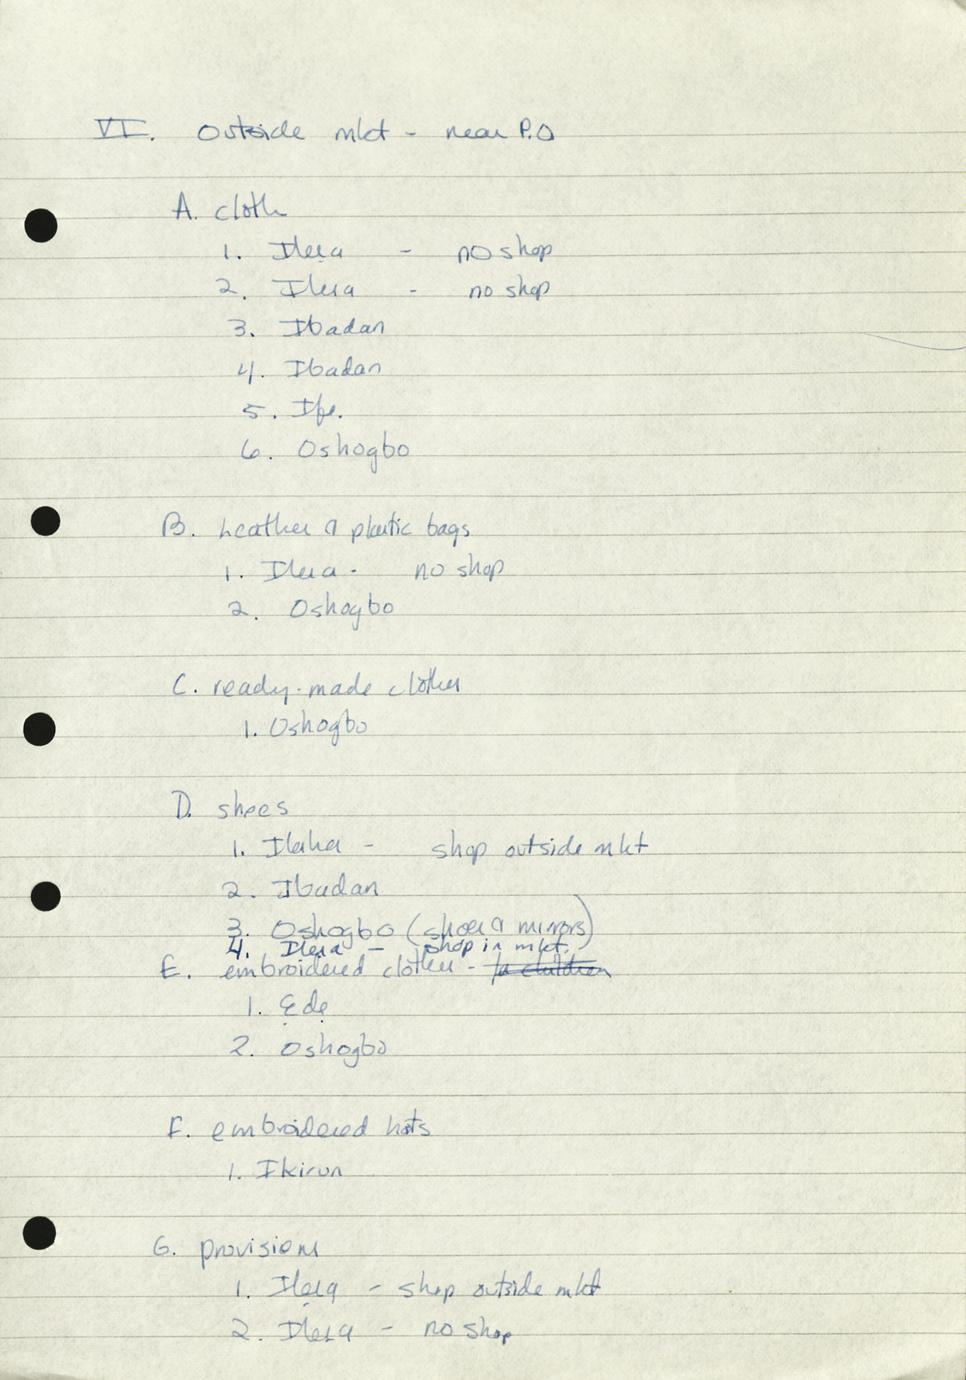 VI. Outside mkt - near P.O
A. cloth
1. Ilesa - no shop
2. Ilesa - no shop
3. Ibadan
4. Ibadan
5. Ife.
6. Oshogbo
B. Leather & plastic bags
1. Ilesa - no shop
2. Oshogbo
C. ready-made clothes
1. Oshogbo
D. shoes
1. - shop outside mkt
2. Ibadan
3. Oshogbo (shoes & mirrors)
4. Ilesa - shop in mkt.
E. embroidered clothes - for children
1. Ẹdẹ
2. Oshogbo
F. embroidered hats
1. Ikirun
G. provisions
1. Ilesa - shop outside mkt
2. Ilesa - no shop